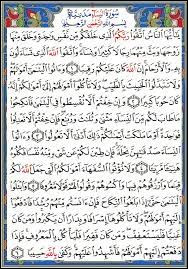 سورة النساء مدنية
بسم الله الرحمن الرحيم
يَٓا اَيُّهَا النَّاسُ اتَّقُوا رَبَّكُمُ الَّذ۪ي خَلَقَكُمْ مِنْ نَفْسٍ وَاحِدَةٍ وَخَلَقَ مِنْهَا
زَوْجَهَا وَبَثَّ مِنْهُمَا رِجَالًا كَث۪يرًا وَنِسَٓاءً وَاتَّقُوا اللّٰهَ الَّذ۪ي تَسَٓاءَلُونَ
بِه۪ وَالْاَرْحَامَ اِنَّ اللّٰهَ كَانَ عَلَيْكُمْ رَق۪يبًا وَاٰتُوا الْيَتَامٰٓى اَمْوَالَهُمْ
وَلَا تَتَبَدَّلُوا الْخَب۪يثَ بِالطَّيِّبِ وَلَا تَأْكُلُٓوا اَمْوَالَهُمْ اِلٰٓى اَمْوَالِكُمْ اِنَّهُ
كَانَ حُوبًا كَب۪يرًا وَاِنْ خِفْتُمْ اَلَّا تُقْسِطُوا فِي الْيَتَامٰى فَانْكِحُوا مَا
طَابَ لَكُمْ مِنَ النِّسَٓاءِ مَثْنٰى وَثُلٰثَ وَرُبَاعَ فَاِنْ خِفْتُمْ اَلَّا تَعْدِلُوا
فَوَاحِدَةً اَوْ مَا مَلَكَتْ اَيْمَانُكُمْ ذٰلِكَ اَدْنٰٓى اَلَّا تَعُولُوا وَاٰتُوا
النِّسَٓاءَ صَدُقَاتِهِنَّ نِحْلَةً فَاِنْ طِبْنَ لَكُمْ عَنْ شَيْءٍ مِنْهُ نَفْسًا فَكُلُوهُ
هَن۪ٓيـًٔا مَر۪ٓيـًٔا وَلَا تُؤْتُوا السُّفَهَٓاءَ اَمْوَالَكُمُ الَّت۪ي جَعَلَ اللّٰهُ لَكُمْ
قِيَامًا وَارْزُقُوهُمْ ف۪يهَا وَاكْسُوهُمْ وَقُولُوا لَهُمْ قَوْلًا مَعْرُوفًا
وَابْتَلُوا الْيَتَامٰى حَتّٰٓى اِذَا بَلَغُوا النِّكَاحَ فَاِنْ اٰنَسْتُمْ مِنْهُمْ رُشْدًا
فَادْفَعُٓوا اِلَيْهِمْ اَمْوَالَهُمْ وَلَا تَأْكُلُوهَٓا اِسْرَافًا وَبِدَارًا اَنْ يَكْبَرُوا وَمَنْ
كَانَ غَنِيًّا فَلْيَسْتَعْفِفْ وَمَنْ كَانَ فَق۪يرًا فَلْيَأْكُلْ بِالْمَعْرُوفِ فَاِذَا
دَفَعْتُمْ اِلَيْهِمْ اَمْوَالَهُمْ فَاَشْهِدُوا عَلَيْهِمْ وَكَفٰى بِاللّٰهِ حَس۪يبًا